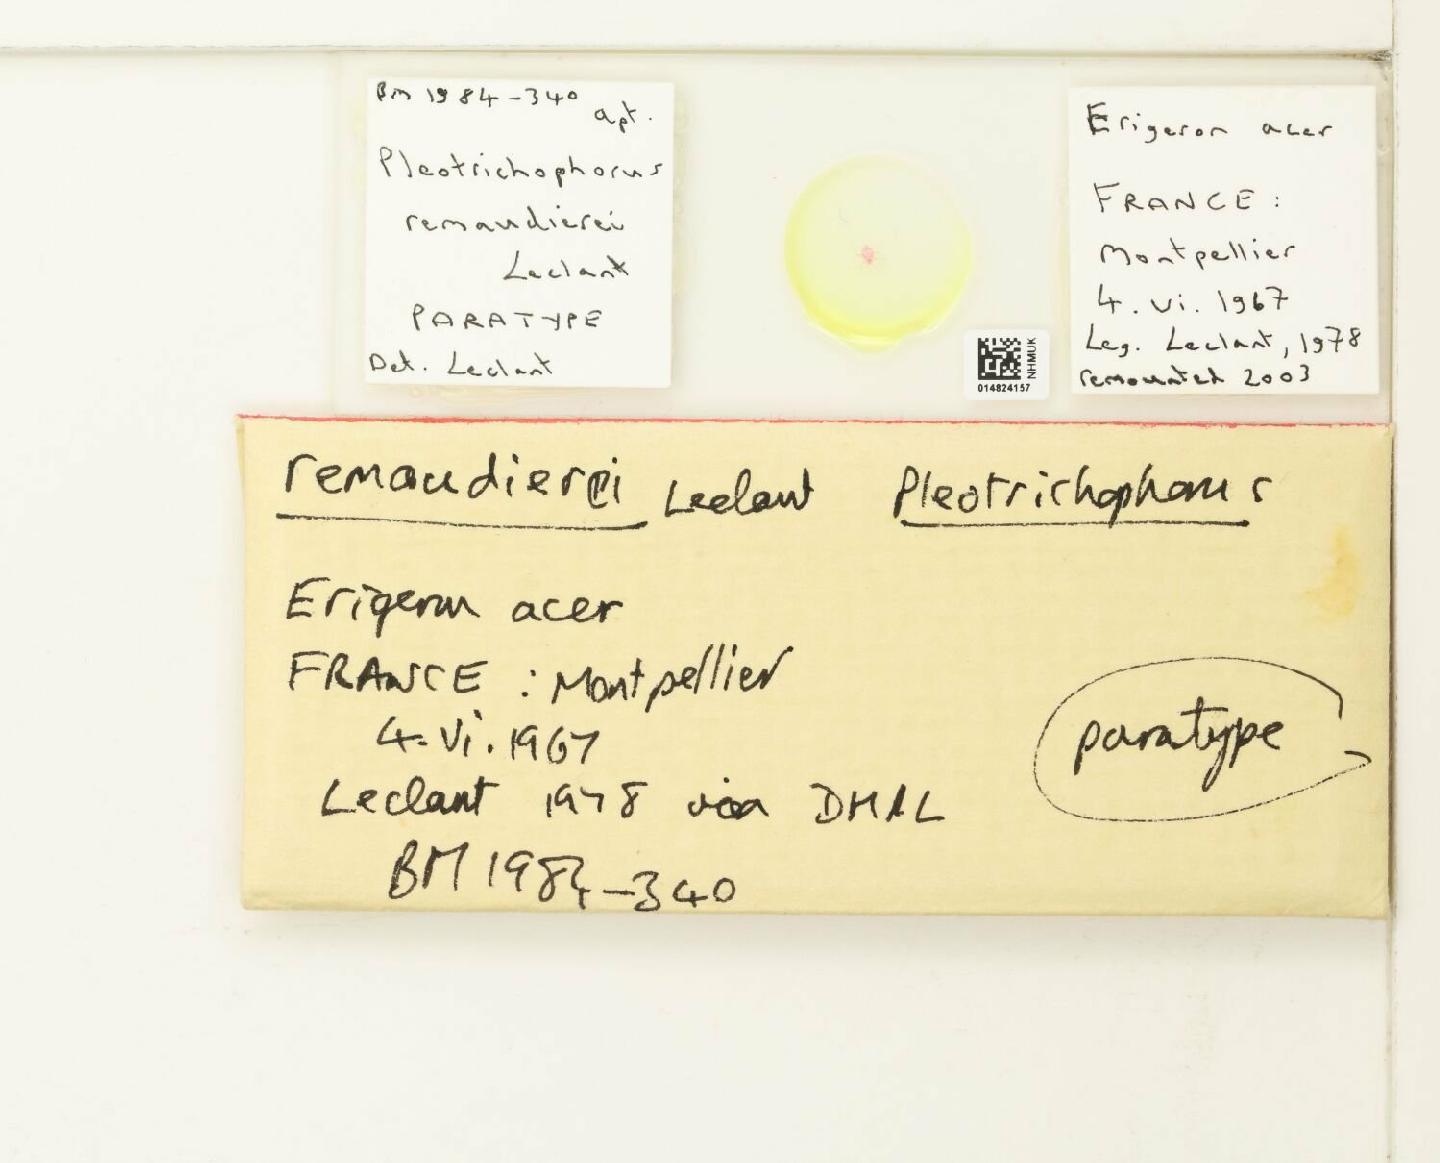 BM 1984-340
apt.
Pleotrichophorus
remaudierei
Leclant
PARATYPE
Det. Leclant
NHMUK
014824157
Erigeron acer
FRANCE:
Montpellier
4.vi.1967
Leg. Leclant, 1978
remounted 2003
remaudierei Leclant Pleotrichophorus
Erigeron acer
FRANCE : Montpellier
4.vi.1967
paratype
Leclant 1978 via DHRL
BM 1984-340